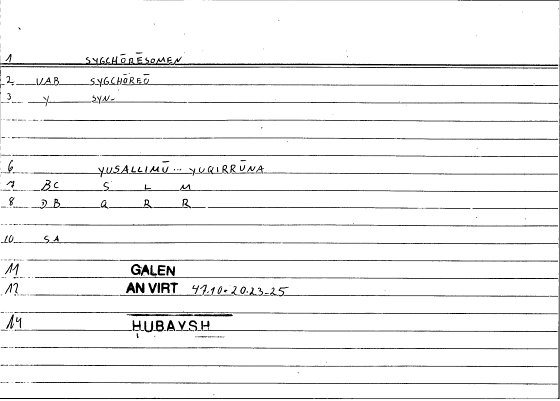 1 SYGCHŌRĒSOMEN
2 VAB SYGCHŌREŌ
3 Y SYN-
6 YUSALLIMŪ ... YUQIRRŪNA
7 BC S L M
8 DB Q R R
10 SA
11 GALEN
12 AN VIRT 47.10 20.23-25
14 HUBAYSH